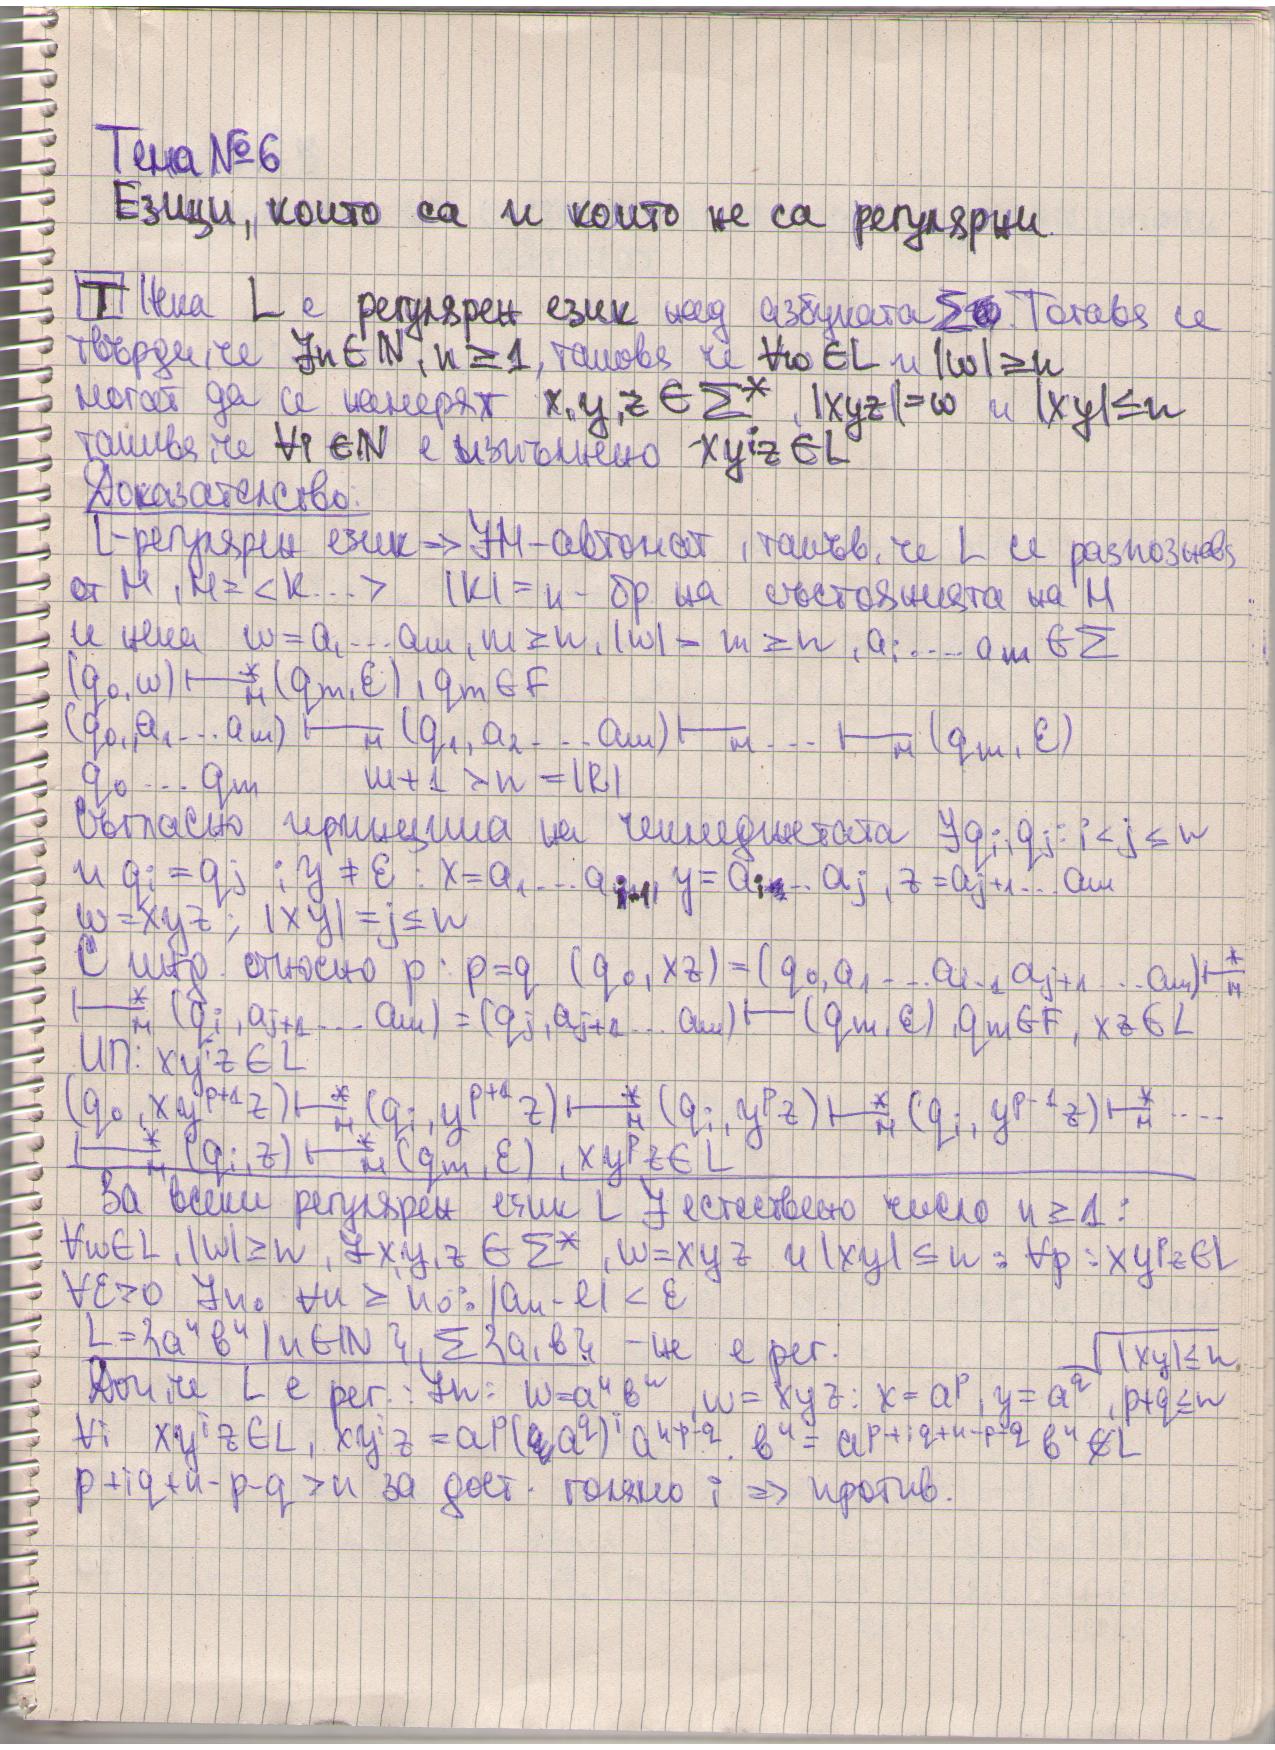 Тема №6
Езици, които са и които не са регулярни.
T Нека L е регулярен език над азбуката Σ. Тогава се
твърди, че ∃n∈ℕ, n≥1, такова че ∀w∈L и |w|≥n
могат да се намерят x,y,z∈Σ*, |xyz|=w и |xy|≤n
такива, че ∀i∈ℕ е изпълнено xyⁱz∈L
Доказателство:
L-регулярен език => ∃M-автомат, такъв, че L се разпознава
от M, M=<K...> |K|=n - бр на състоянията на M
и нека w=a₁...aₘ, m≥n, |w|=m≥n, aᵢ....aₘ∈Σ
(q₀,w)⊢*ₘ(qₘ,ε), qₘ∈F
(q₀,a₁...aₘ)⊢ₘ(q₁,a₂...aₘ)⊢ₘ...⊢ₘ(qₘ,ε)
q₀...qₘ m+1>n=|K|
Съгласно принципа на чекмеджетата ∃qᵢ,qⱼ: i<j≤n
и qᵢ=qⱼ ; y≠ε : x=a₁...aᵢ₋₁, y=aᵢ...aⱼ, z=aⱼ₊₁...aₘ
w=xyz; |xy|=j≤n
С инд. относно p: p=q (q₀,xz)=(q₀,a₁...aᵢ₋₁aⱼ₊₁...aₘ)⊢*ₘ
⊢*ₘ(qᵢ,aⱼ₊₁...aₘ)=(qⱼ,aⱼ₊₁...aₘ)⊢(qₘ,ε), qₘ∈F, xz∈L
ИП: xyⁱz∈L
(q₀,xyᵖ⁺¹z)⊢*ₘ(qᵢ,yᵖ⁺¹z)⊢*ₘ(qᵢ,yᵖz)⊢*ₘ(qᵢ,yᵖ⁻¹z)⊢*ₘ....
⊢*ₘ(qᵢ,z)⊢*ₘ(qₘ,ε), xyᵖz∈L
За всеки регулярен език L ∃ естествено число n≥1:
∀w∈L, |w|≥n, ∃x,y,z∈Σ*, w=xyz и |xy|≤n : ∀p : xyᵖz∈L
∀ε>0 ∃n₀ ∀n≥n₀: |aₙ-l|<ε
L={aⁿbⁿ|n∈ℕ}, Σ{a,b} - не е рег. |xy|≤n
Доп. че L е рег.: ∃n: w=aⁿbⁿ, w=xyz: x=aᵖ, y=a^q, p+q≤n
∀i xyⁱz∈L, xyⁱz=aᵖ(a^q)ⁱa^(n-p-q).bⁿ=a^(p+iq+n-p-q)bⁿ∉L
p+iq+n-p-q>n за дост. голямо i => против.